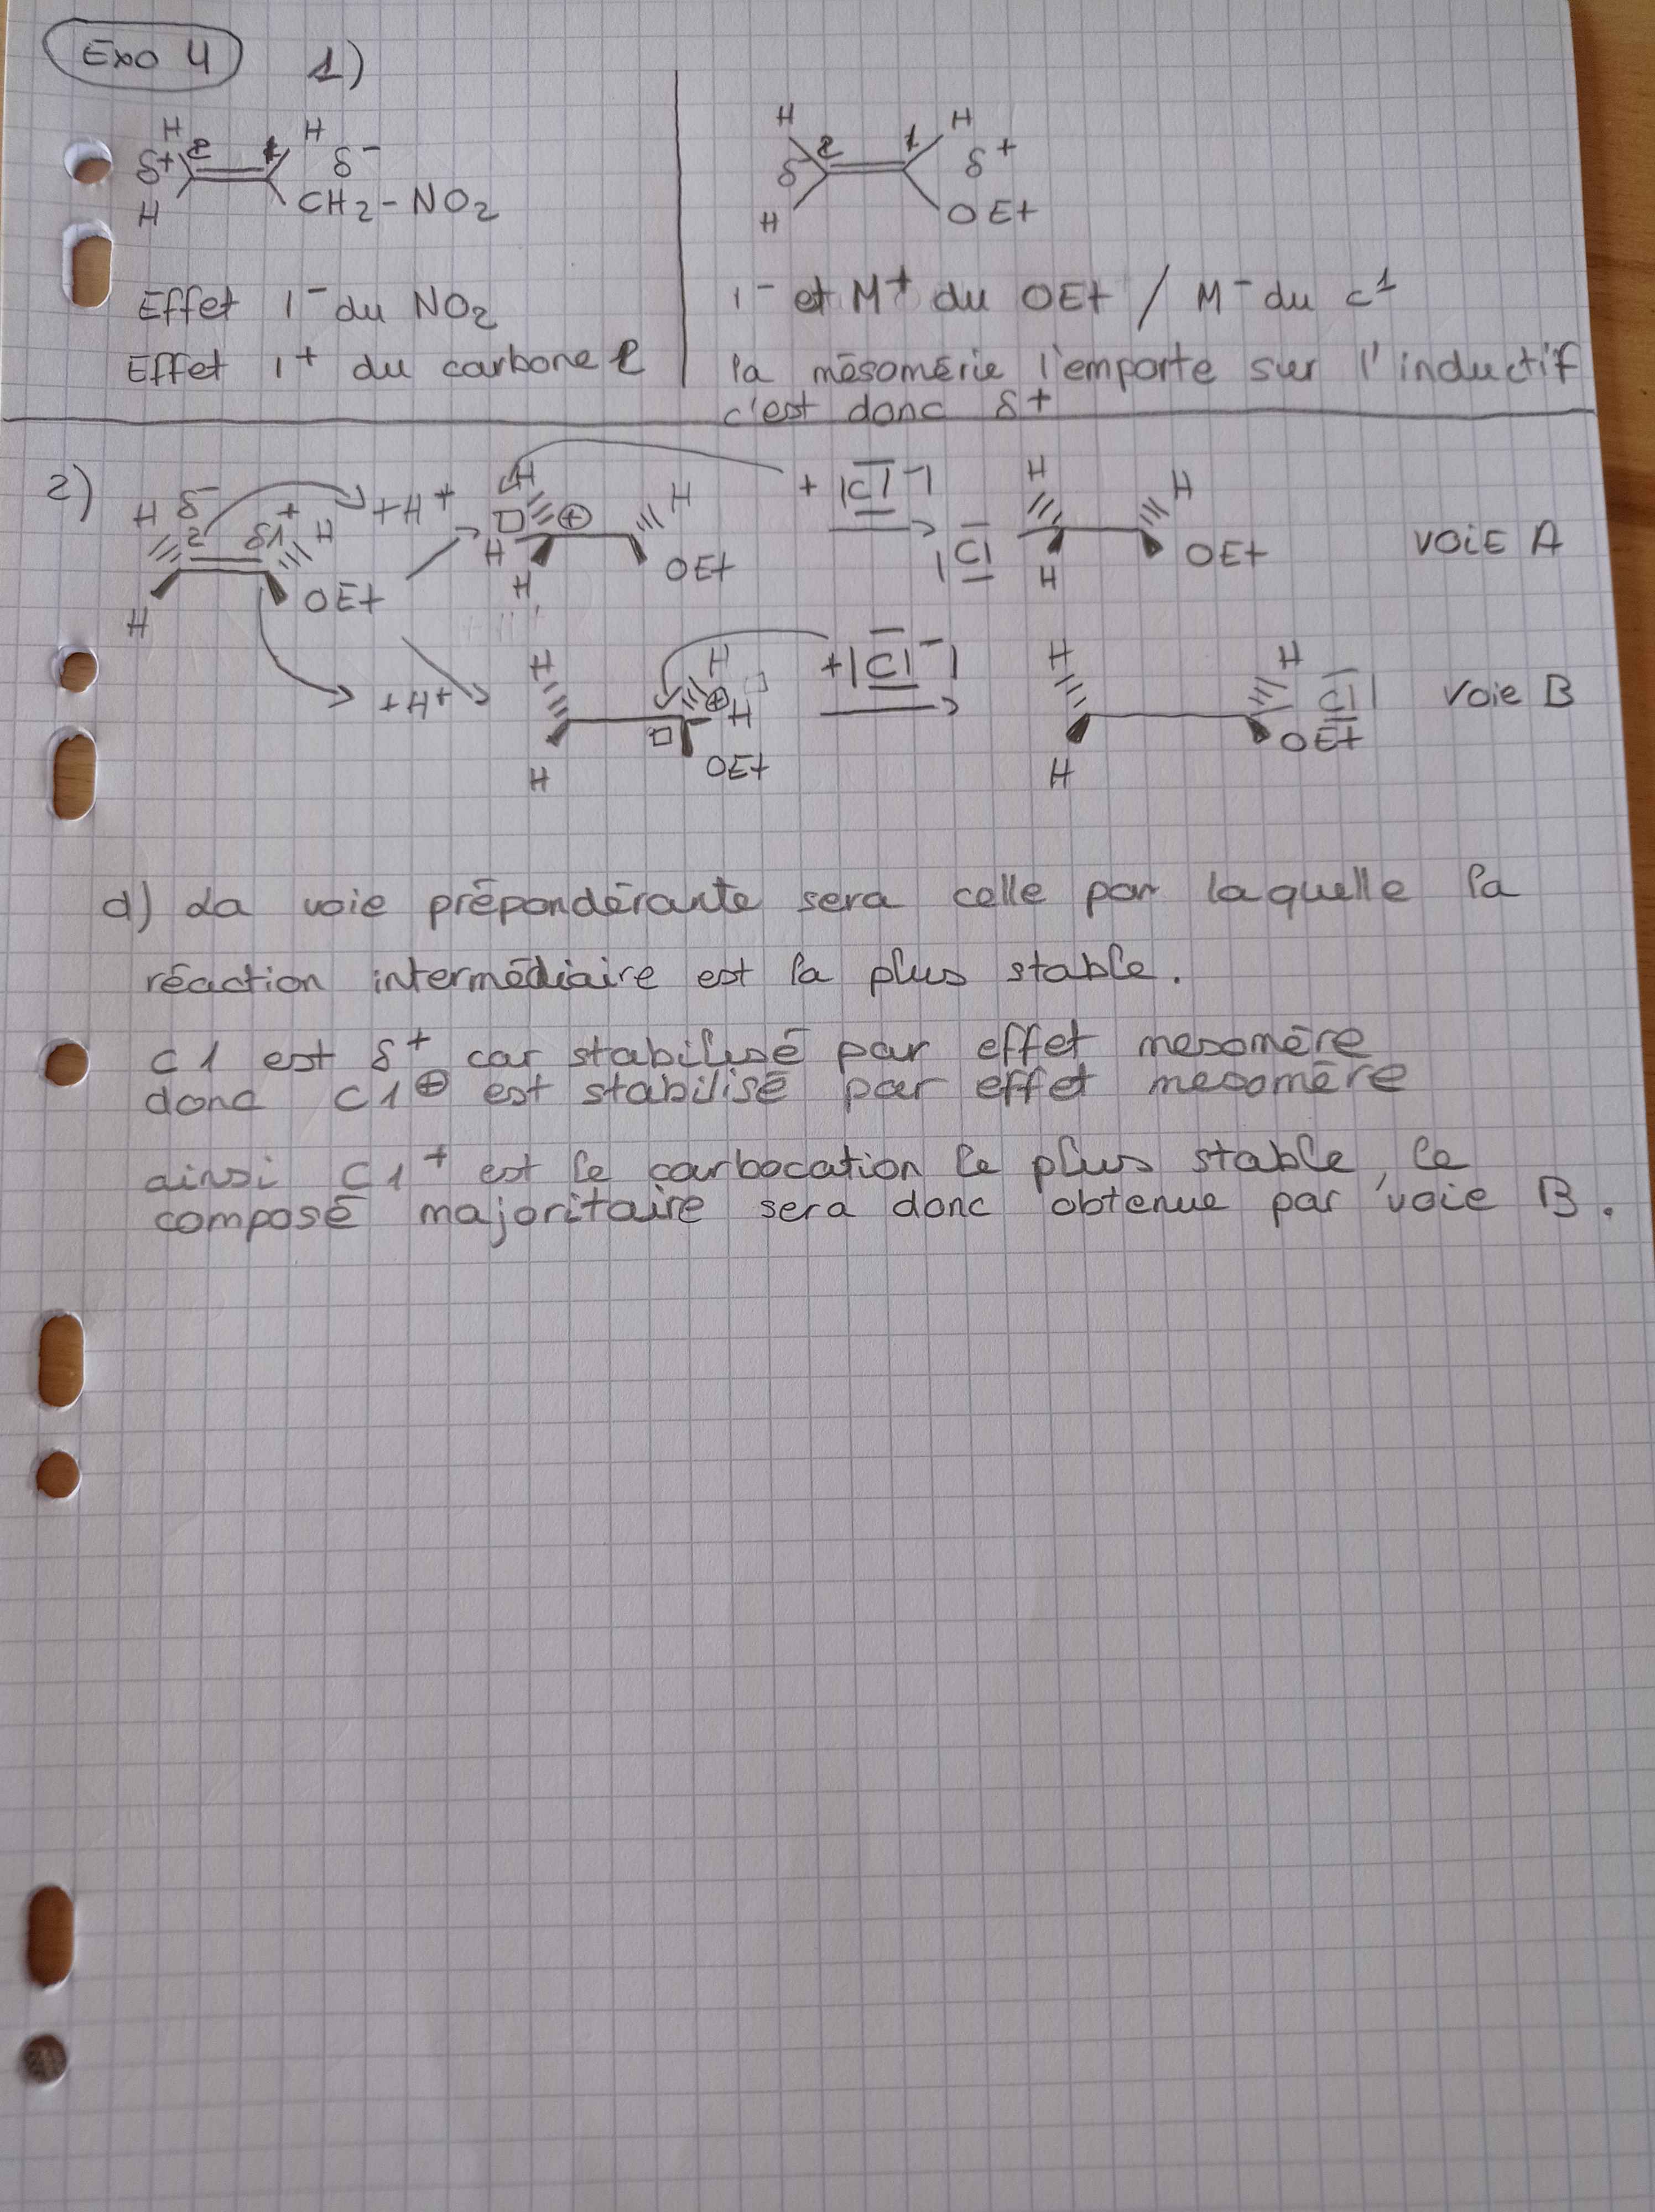 Exo 4 1)
H H
δ+ 2 1 δ-
H CH2-NO2
Effet I- du NO2
Effet I+ du carbone
H H
δ- 2 1 δ+
H OEt
I- et M+ du OEt / M- du C1
la mésomérie l'emporte sur l'inductif
c'est donc δ+
2)
H δ- 2 δ1+ H +H+ H H + |Cl-| H H
H OEt H ⊕ H OEt |Cl H OEt VOIE A
+H+ H H ⊕ H +|Cl-| H H Cl| Voie B
H OEt H OEt
d) La voie prépondérante sera celle par laquelle la
réaction intermédiaire est la plus stable.
C1 est δ+ car stabilisé par effet mesomère
donc C1⊕ est stabilisé par effet mesomère
ainsi C1+ est le carbocation le plus stable, le
composé majoritaire sera donc obtenue par voie B.